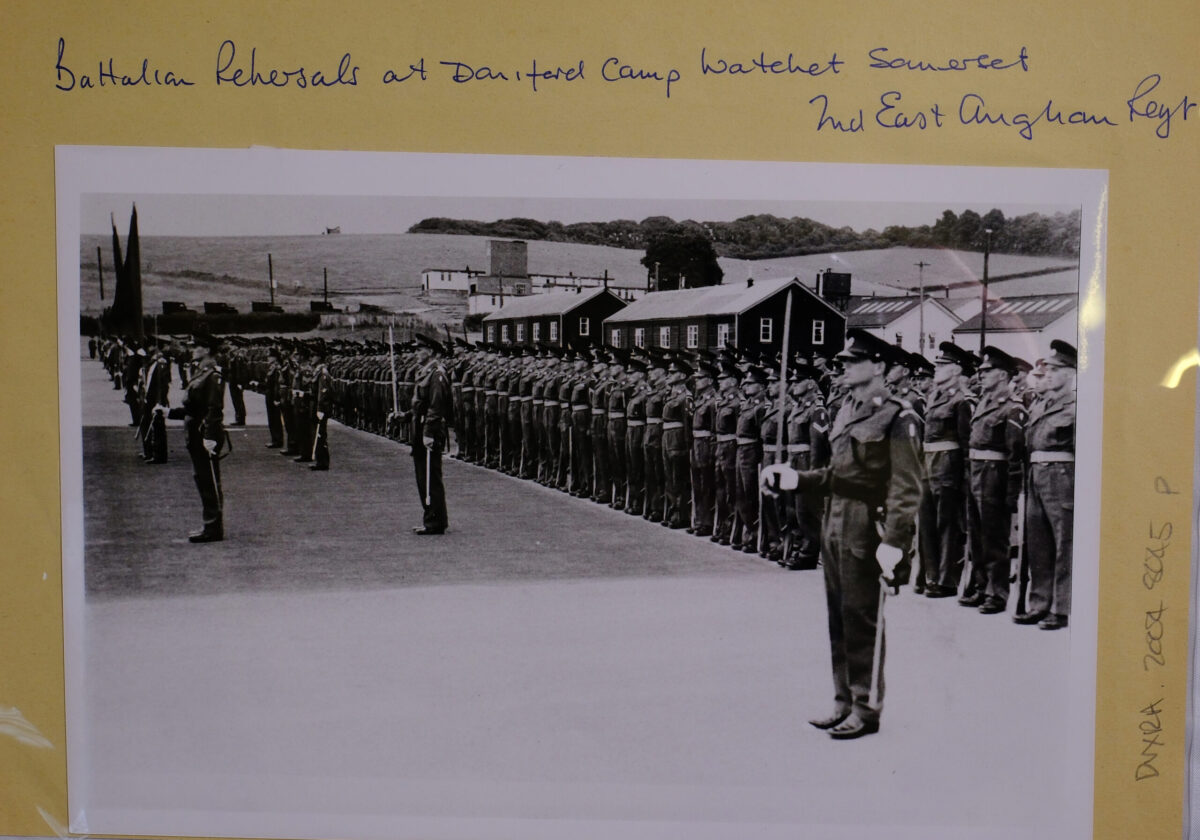 Battalian Rehersals at Doniford Camp Watchet Somerset
2nd East Anghan Regt
DUXRA. 2004 8045 P